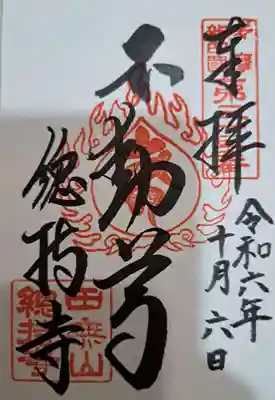 奉拝
令和六年
十月六日
不動尊
總持寺
田無山
總持寺